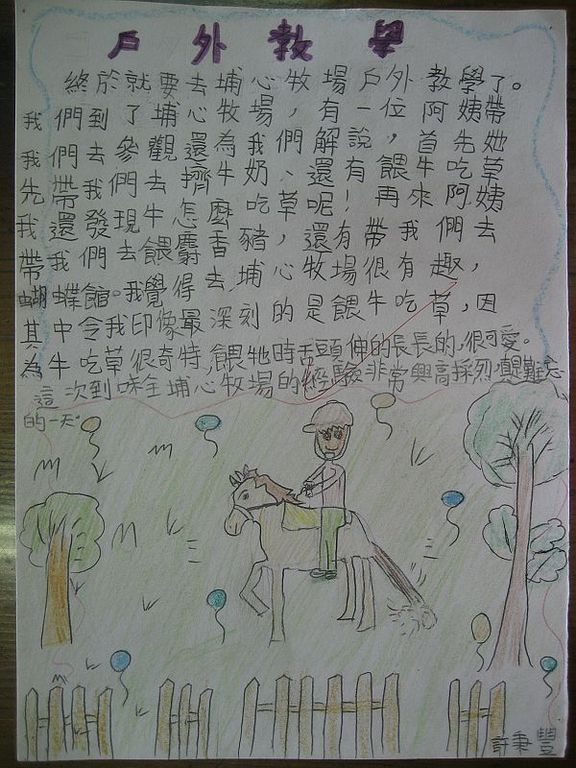 戶外教學
終於就要去埔心牧場戶外教學了。
我們到了埔心牧場，有一位阿姨帶
我們去參觀還為我們解說，首先她
先帶我們去擠牛奶、還有餵牛吃草
我還發現牛怎麼吃草呢！再來阿姨
帶我們去餵麝香豬，還有帶我們去，
蝴蝶館。我覺得去埔心牧場很有趣，
其中令我印像最深刻的是餵牛吃草，因
為牛吃草很奇特，餵牠時舌頭伸的長長的，很可愛。
這次到味全埔心牧場的經驗非常興高採烈真是難忘
的一天。
許秉豐